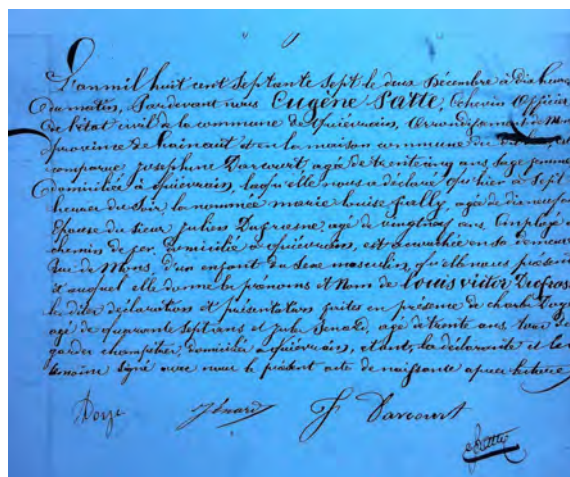 L'an mil huit cent septante sept le deux Décembre à dix heures
du matin, Pardevant nous Eugène Patte, Echevin Officier
de l'état civil de la commune de Quiévrain, Arrondissement de Mons
province de hainaut et en la maison commune du
comparue Josephine Darcourt, agée de trente cinq ans Sage femme
domiciliée à Quiévrain, laqu'elle nous a déclaré qu'hier à Sept
heures du Soir, la nommée marie louise agée de dix neuf
Epouse du sieur Julien Dufresne agé de vingt ans Employé
chemin de fer domicilié à quiévrain, est accouchée en sa demeure
Rue de Mons, d'un enfant du Sexe masculin, qu'elle nous présente
et auquel elle donne les prénoms et Nom de Louis victor
les dites déclaration et présentation faites en présence de charles Doye
agé de quarante Sept ans et Jules Senard, agé de trente ans tous deux
gardes champêtres, domiciliés à Quiévrain, et ont, la déclarante et les
témoins signé avec nous le présent acte de naissance après lecture
Doye Senard J Darcourt
Patte